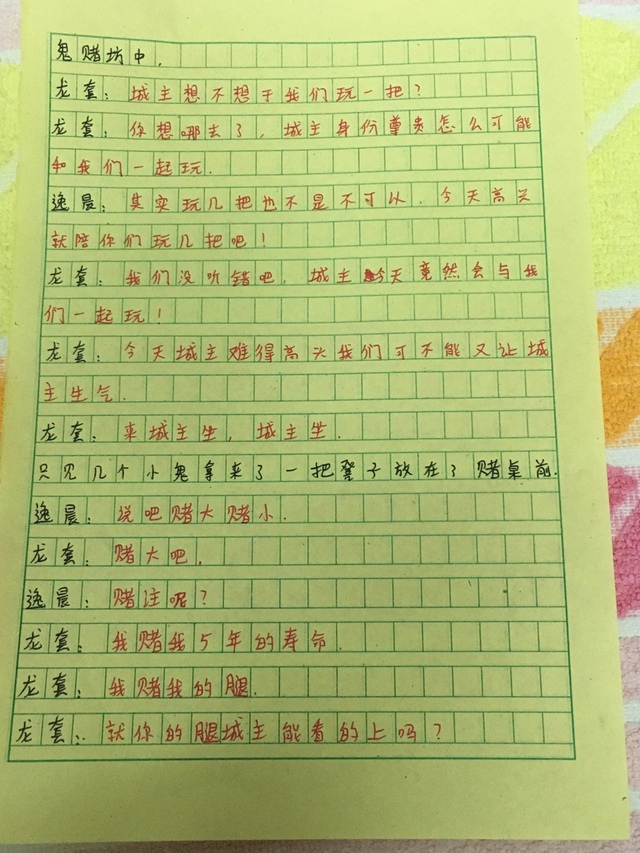 鬼赌坊中.
龙套：城主想不想于我们玩一把？
龙套：你想哪去了，城主身份尊贵怎么可能
和我们一起玩.
逸晨：其实玩几把也不是不可以.今天高兴
就陪你们玩几把吧！
龙套：我们没听错吧，城主今天竟然会与我
们一起玩！
龙套：今天城主难得高兴我们可不能又让城
主生气.
龙套：来城主坐，城主坐.
只见几个小鬼拿来了一把凳子放在了赌桌前.
逸晨：说吧赌大赌小.
龙套：赌大吧.
逸晨：赌注呢？
龙套：我赌我5年的寿命.
龙套：我赌我的腿.
龙套：就你的腿城主能看的上吗？